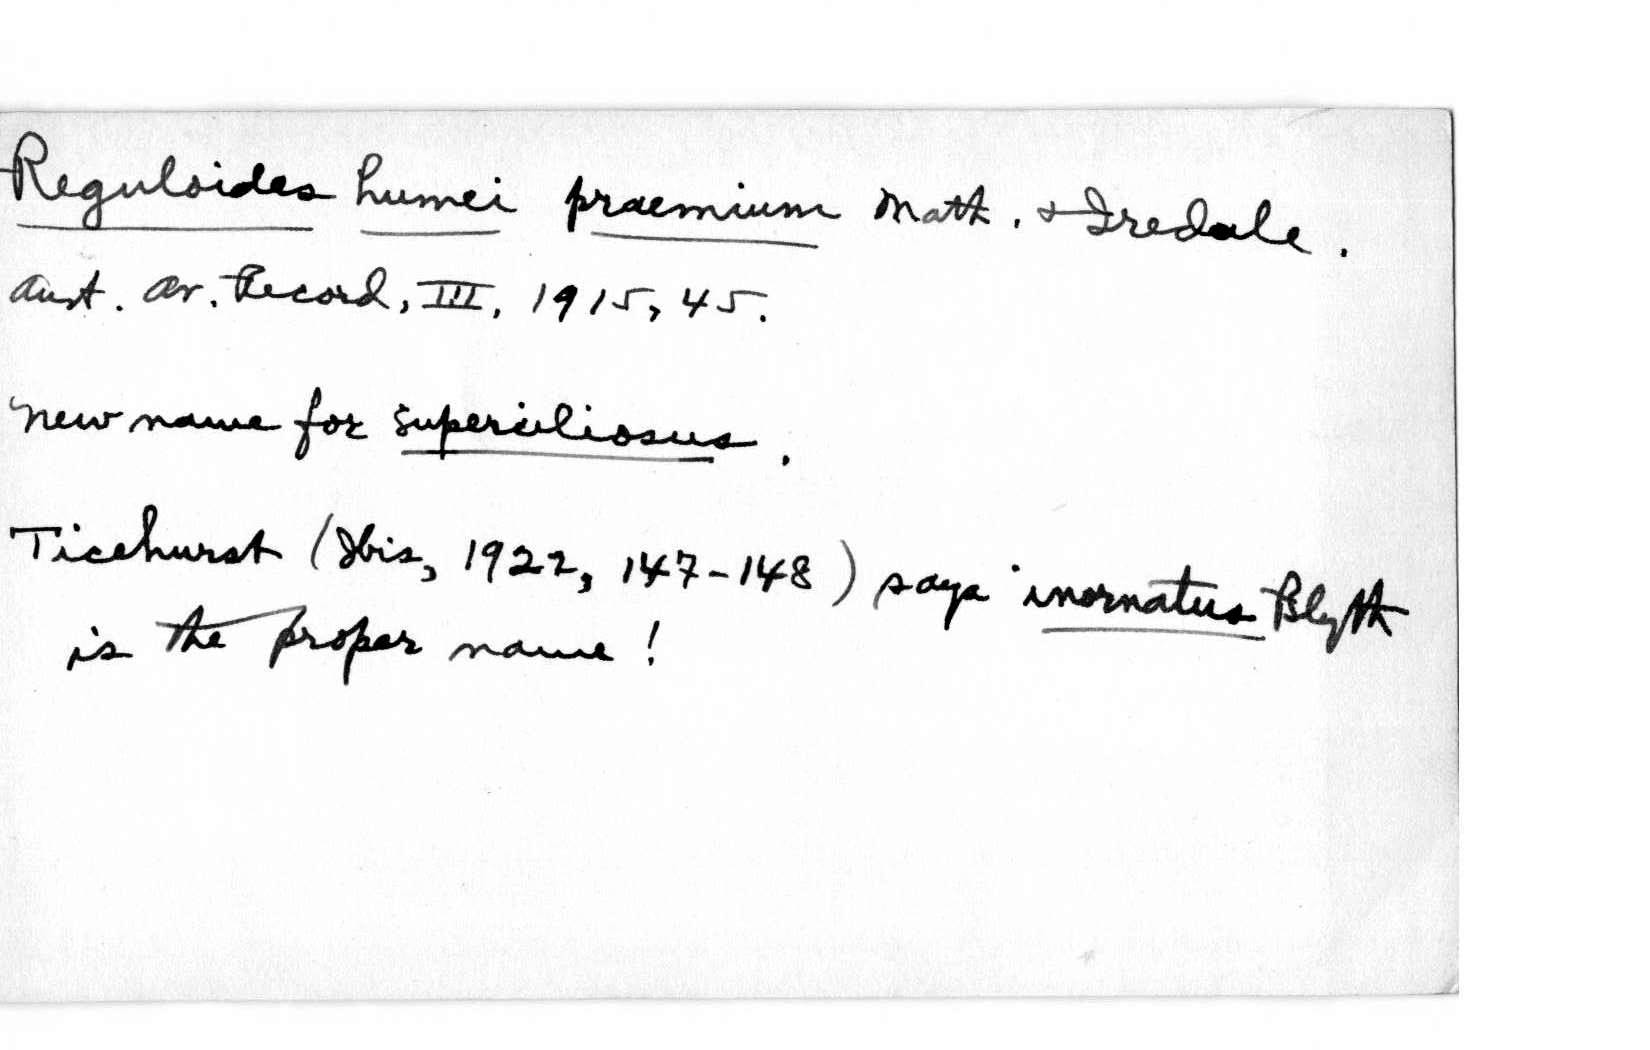 Reguloides humei praemium Math. & Iredale.
Aust. Av. Record, III, 1915, 45.
New name for superciliosus.
Ticehurst (Ibis, 1922, 147-148) says inornatus Blyth
is the proper name!